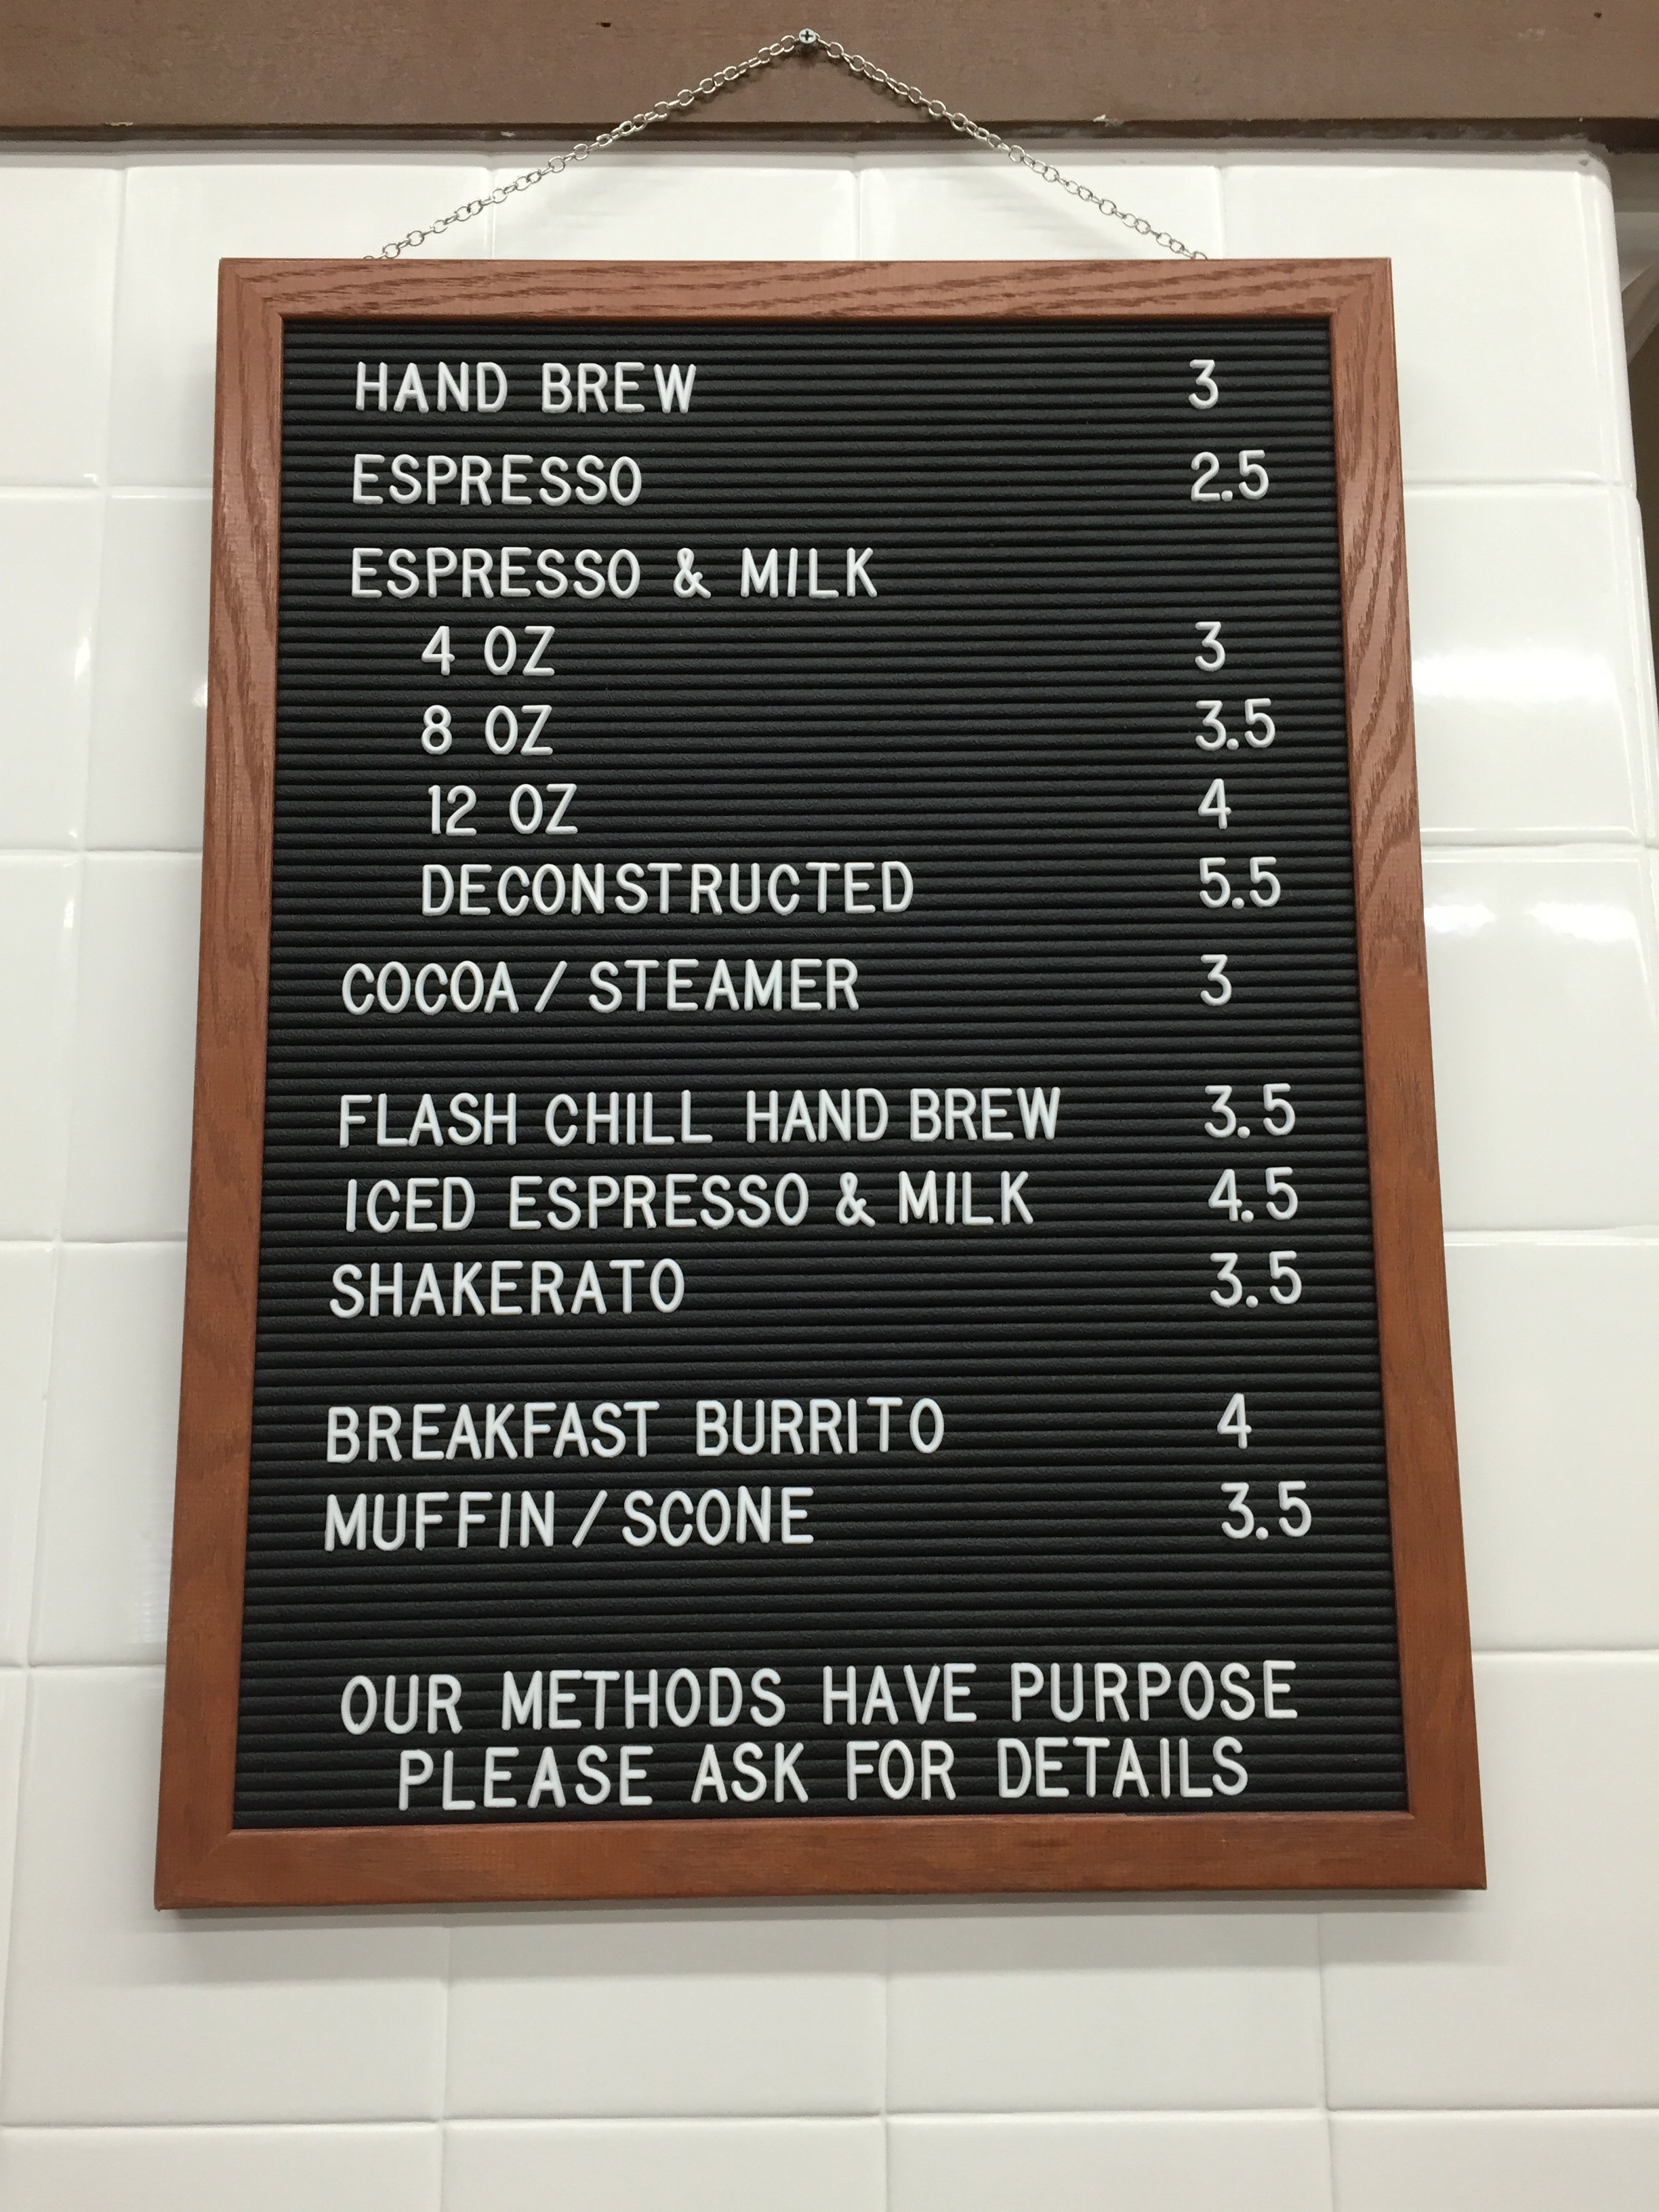 HAND BREW 3
ESPRESSO 2.5
ESPRESSO & MILK
4 OZ 3
8 OZ 3.5
12 OZ 4
DECONSTRUCTED 5.5
COCOA / STEAMER 3
FLASH CHILL HAND BREW 3.5
ICED ESPRESSO & MILK 4.5
SHAKERATO 3.5
BREAKFAST BURRITO 4
MUFFIN / SCONE 3.5
OUR METHODS HAVE PURPOSE
PLEASE ASK FOR DETAILS